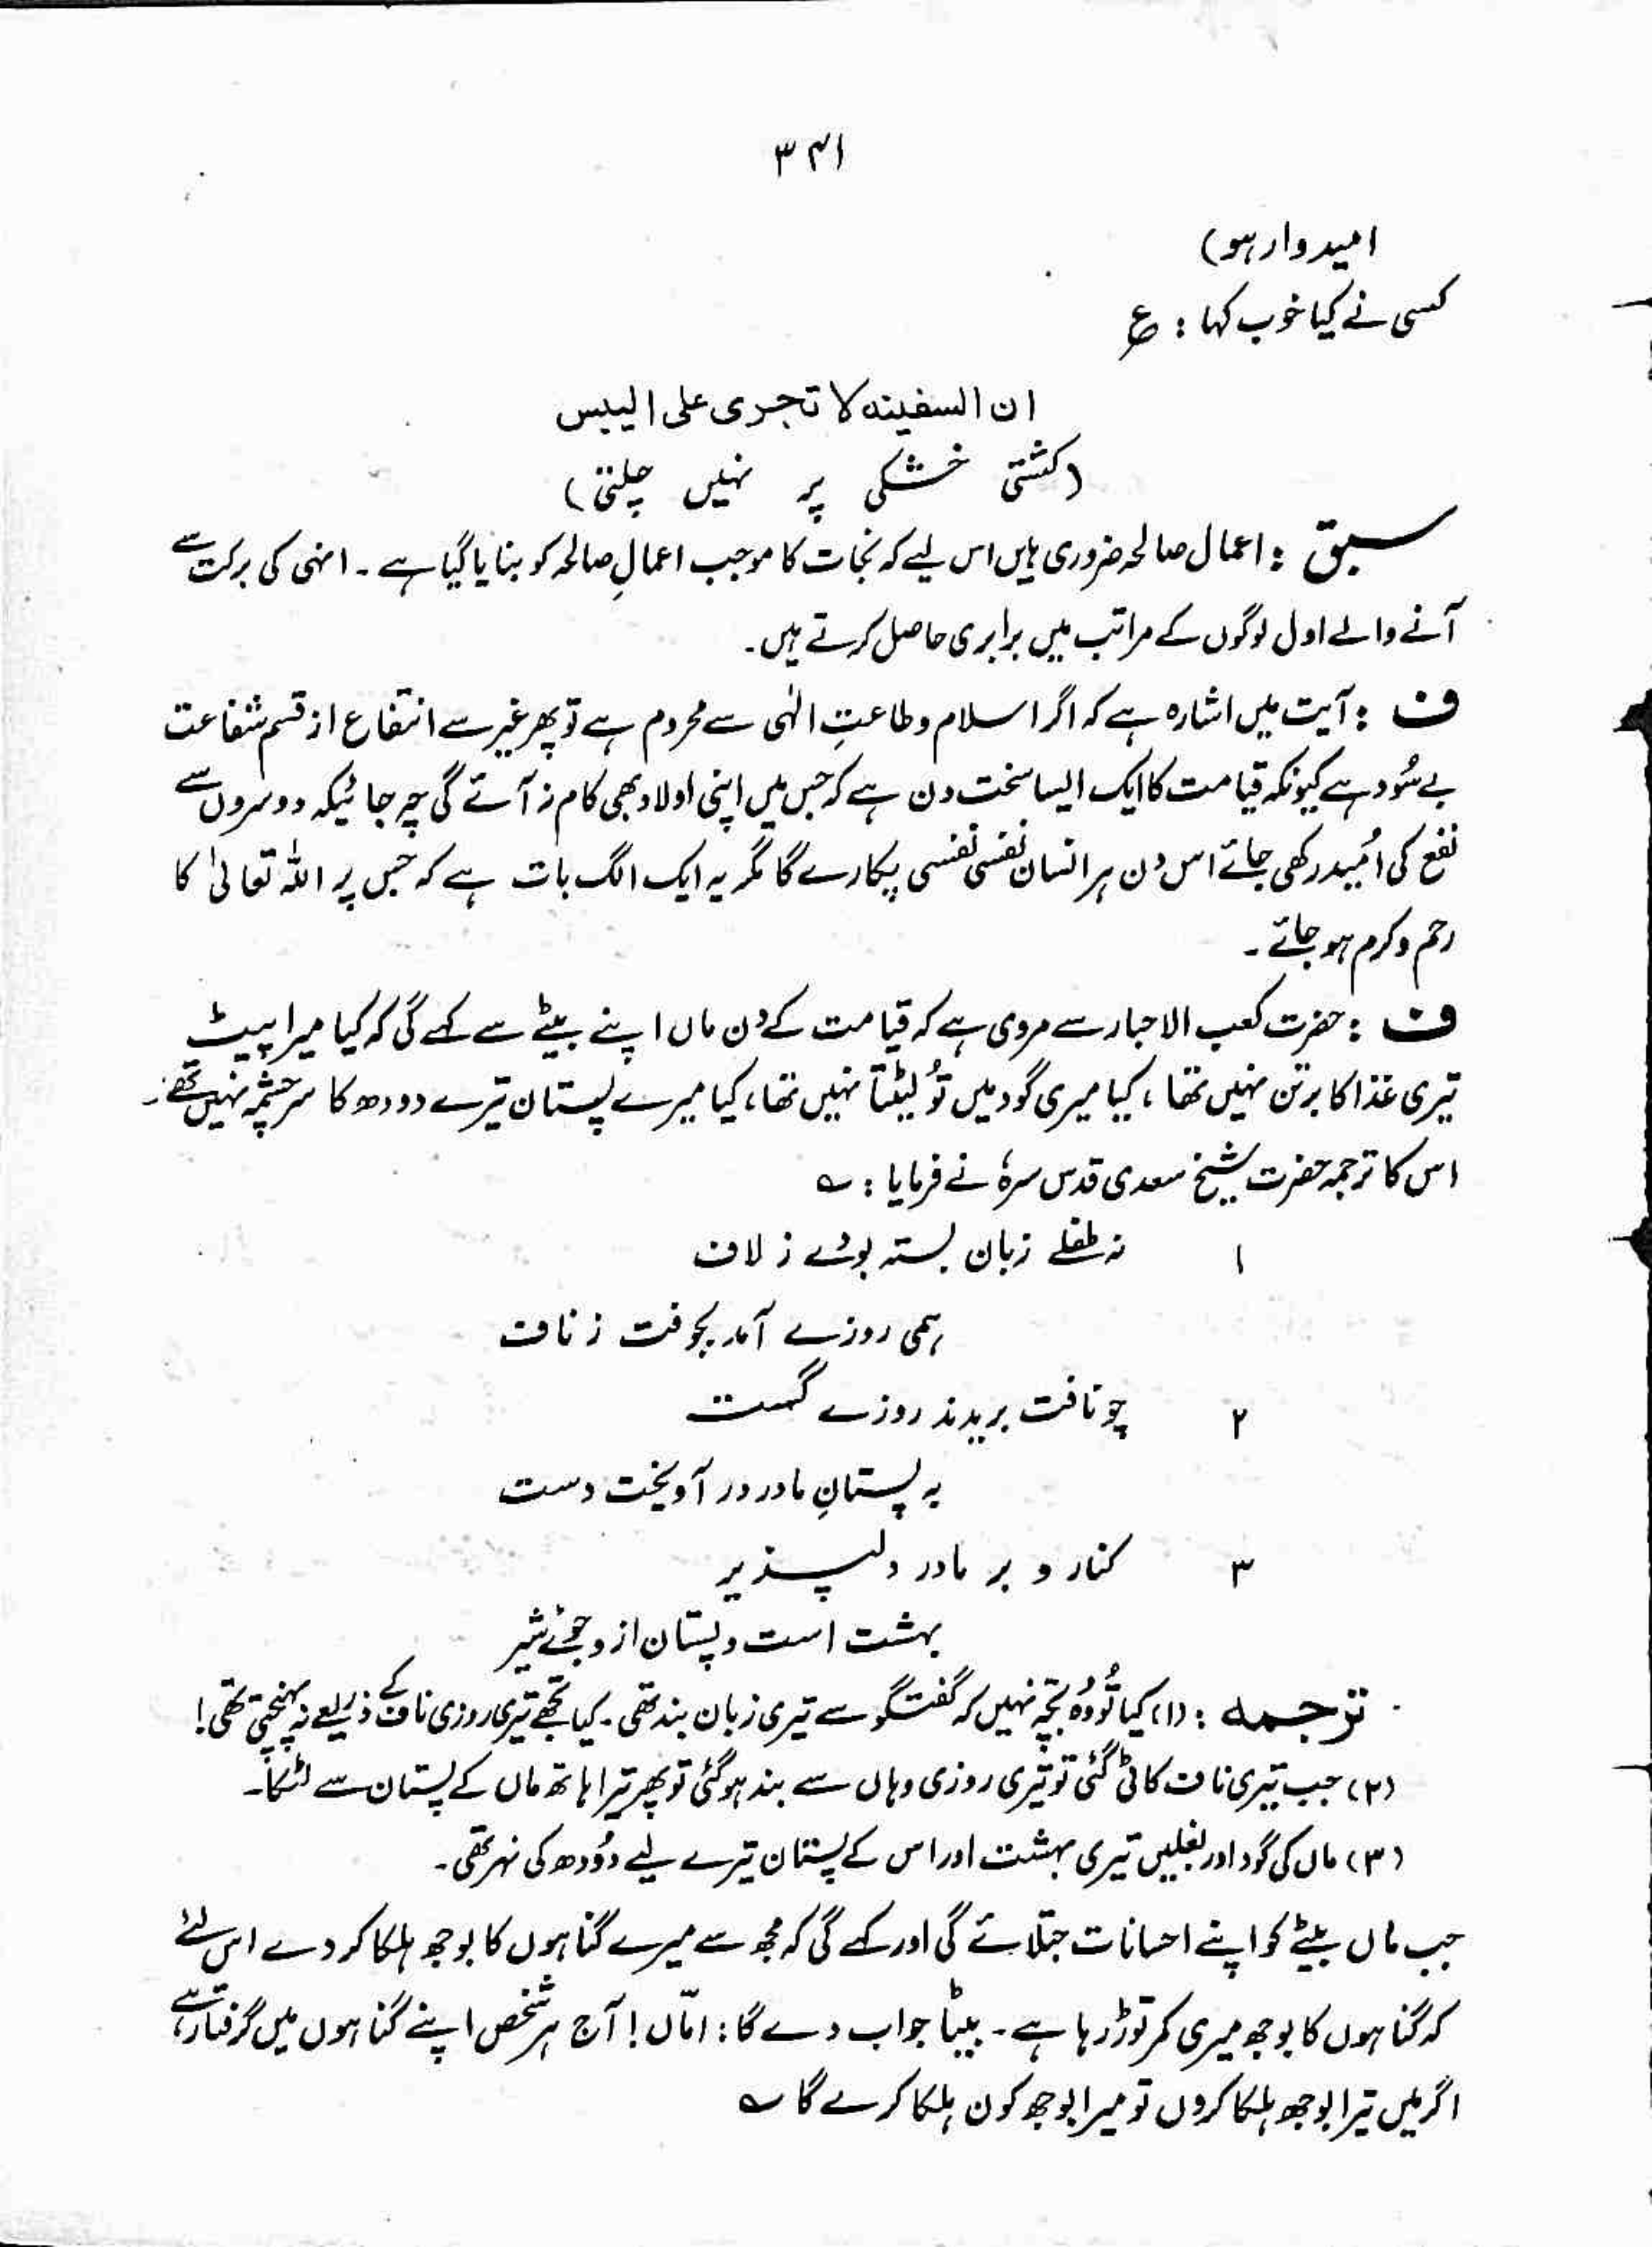 ۳۴۱
امیدوار ہو)
کسی نے کیا خوب کہا : ع
ان السفینہ لا تجری علی الیبس
(کشتی خشکی پر نہیں چلتی)
سبق : اعمال صالحہ ضروری ہیں اس لیے کہ نجات کا موجب اعمالِ صالحہ کو بنایا گیا ہے ۔ انہی کی برکت سے
آنے والے اول لوگوں کے مراتب میں برابری حاصل کرتے ہیں۔
ف : آیت میں اشارہ ہے کہ اگر اسلام و طاعتِ الٰہی سے محروم ہے تو پھر غیر سے انتفاع از قسم شفاعت
بے سُود ہے کیونکہ قیامت کا ایک ایسا سخت دن ہے کہ جس میں اپنی اولاد بھی کام نہ آئے گی چہ جائیکہ دوسروں سے
نفع کی اُمید رکھی جائے اس دن ہر انسان نفسی نفسی پکارے گا مگر یہ ایک الگ بات ہے کہ جس پر اللہ تعالیٰ کا
رحم و کرم ہو جائے ۔
ف : حضرت کعب الاحبار سے مروی ہے کہ قیامت کے دن ماں اپنے بیٹے سے کہے گی کہ کیا میرا پیٹ
تیری غذا کا برتن نہیں تھا ، کیا میری گود میں تُو لیٹتا نہیں تھا، کیا میرے پستان تیرے دودھ کا سرچشمہ نہیں تھے ۔
اس کا ترجمہ حضرت شیخ سعدی قدس سرہٗ نے فرمایا : ؎
۱ نہ طفلے زبان بستہ بودے ز لاف
ہمی روزے آمد بجوفت ز ناف
۲ چو نافت بریدند روزے گسست
بہ پستانِ مادر در آویخت دست
۳ کنار و بر مادر دلپذیر
بہشت است و پستان ازو جوئے شیر
ترجمہ : (۱) کیا تُو وُہ بچّہ نہیں کہ گفتگو سے تیری زبان بند تھی ۔ کیا تجھے تیری روزی ناف کے ذریعے نہ پہنچتی تھی !
(۲) جب تیری ناف کاٹی گئی تو تیری روزی وہاں سے بند ہو گئی تو پھر تیرا ہاتھ ماں کے پستان سے لٹکا۔
(۳) ماں کی گود اور بغلیں تیری بہشت اور اس کے پستان تیرے لیے دُودھ کی نہر تھی ۔
جب ماں بیٹے کو اپنے احسانات جتلائے گی اور کہے گی کہ مجھ سے میرے گناہوں کا بوجھ ہلکا کر دے اس لئے
کہ گناہوں کا بوجھ میری کمر توڑ رہا ہے ۔ بیٹا جواب دے گا : امّاں ! آج ہر شخص اپنے گناہوں میں گرفتار ہے
اگر میں تیرا بوجھ ہلکا کروں تو میرا بوجھ کون ہلکا کرے گا ؎